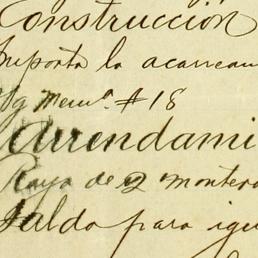 Construcción
Importa la acarream
Vg Menl. #18
Arrendami
Raya de 2 montero
Saldo para igu